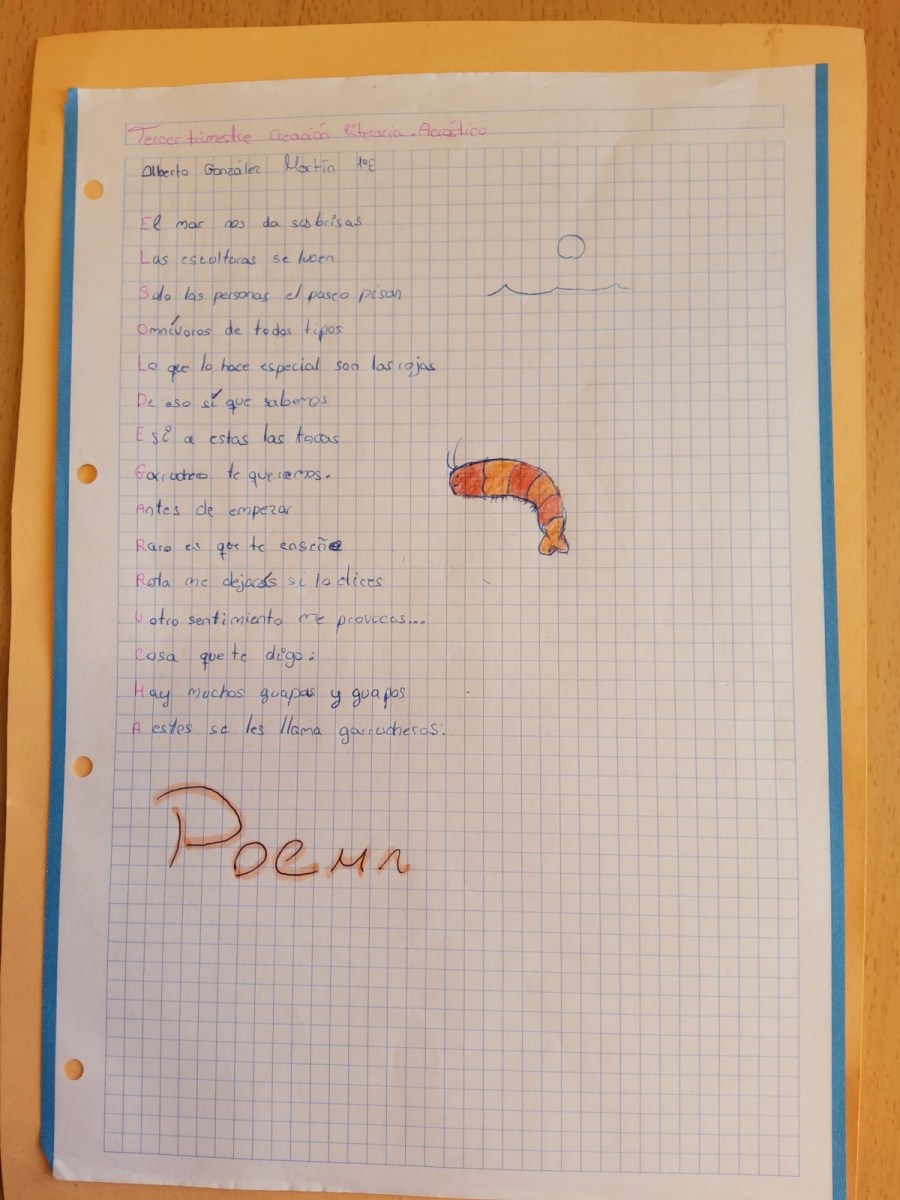 Tercer trimestre Creación literaria. Acróstico
Alberto González Martín 1ºE
El mar nos da sus brisas
Las esculturas se lucen
Solo las personas el paseo pisan
Omnívoros de todos tipos
Lo que lo hace especial son las rojas
De eso sí que sabemos
E si a estas las tocas
Garruchero te queremos.
Antes de empezar
Raro es que te enseñe
Rota me dejarás si lo dices
U otro sentimiento me provocas...
Cosa que te digo:
Hay muchos guapas y guapos
A estos se les llama garrucheros.
Poema